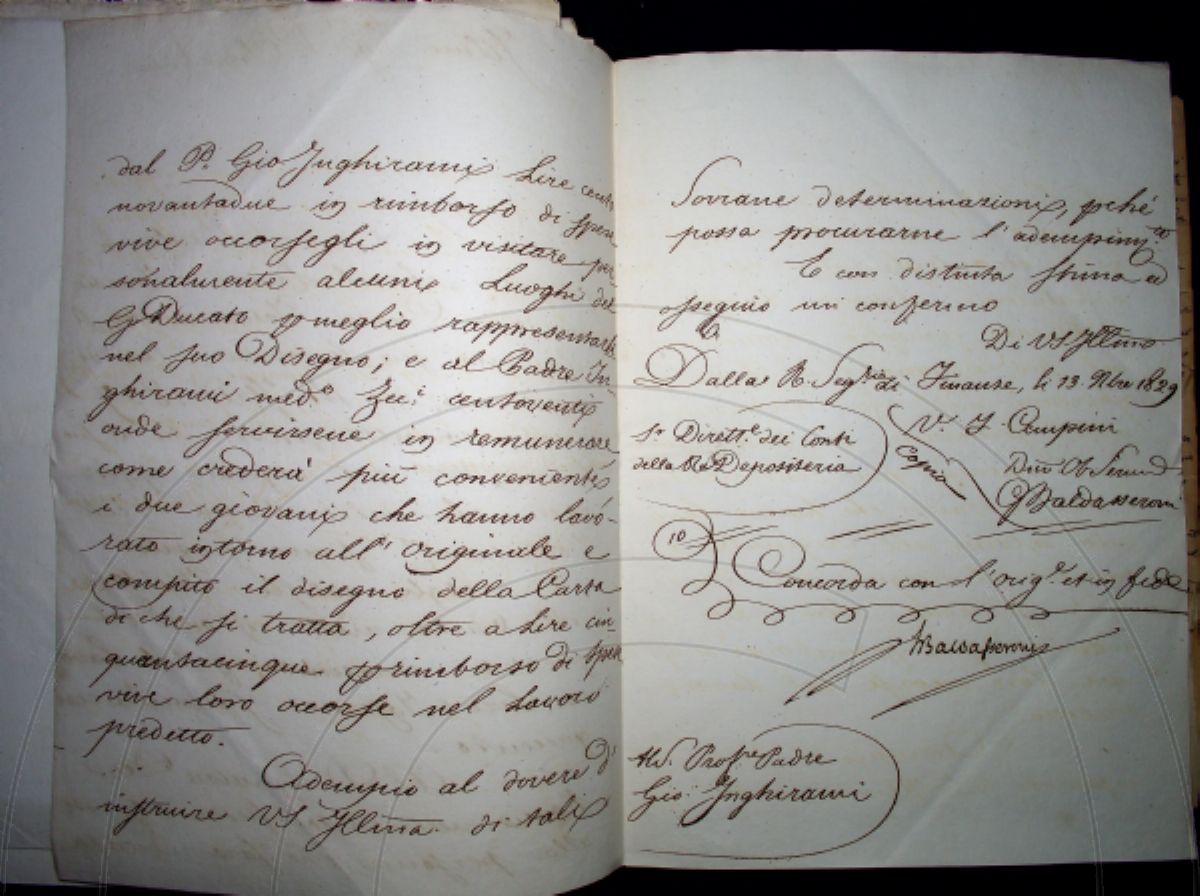 dal P. Gio Inghirami Lire cento
novantadue in rimborso di spese
vive occorsegli in visitare per
sonalmente alcuni Luoghi del
G Ducato p meglio rappresentarli
nel suo Disegno; e al Padre In
ghirami med.o Zec.i centoventi
onde servirsene in remunerare
come crederà più conveniente
i due giovani che hanno lavo-
rato intorno all' originale e
compito il disegno della Carta
di che si tratta, oltre a Lire cin-
quantacinque p rimborso di spese
vive loro occorse nel Lavoro
predetto.
Adempio al dovere d'
instruire VS Illma. di tali
Sovrane determinazioni, pché
possa procurarne l'adempim.to
E con distinta stima ed
osseguio mi confermo
Di VS Illma
Dalla R. Seg.ria di Finanze, li 13. 9bre 1829
S.r Dirett.e dei Conti
della R. Depositeria
Copia
V. F. Cempini
G Baldasseroni
10
Concorda con l'orig.e et in fede
Baldasseroni
Al S. Prof.re Padre
Gio. Inghirami